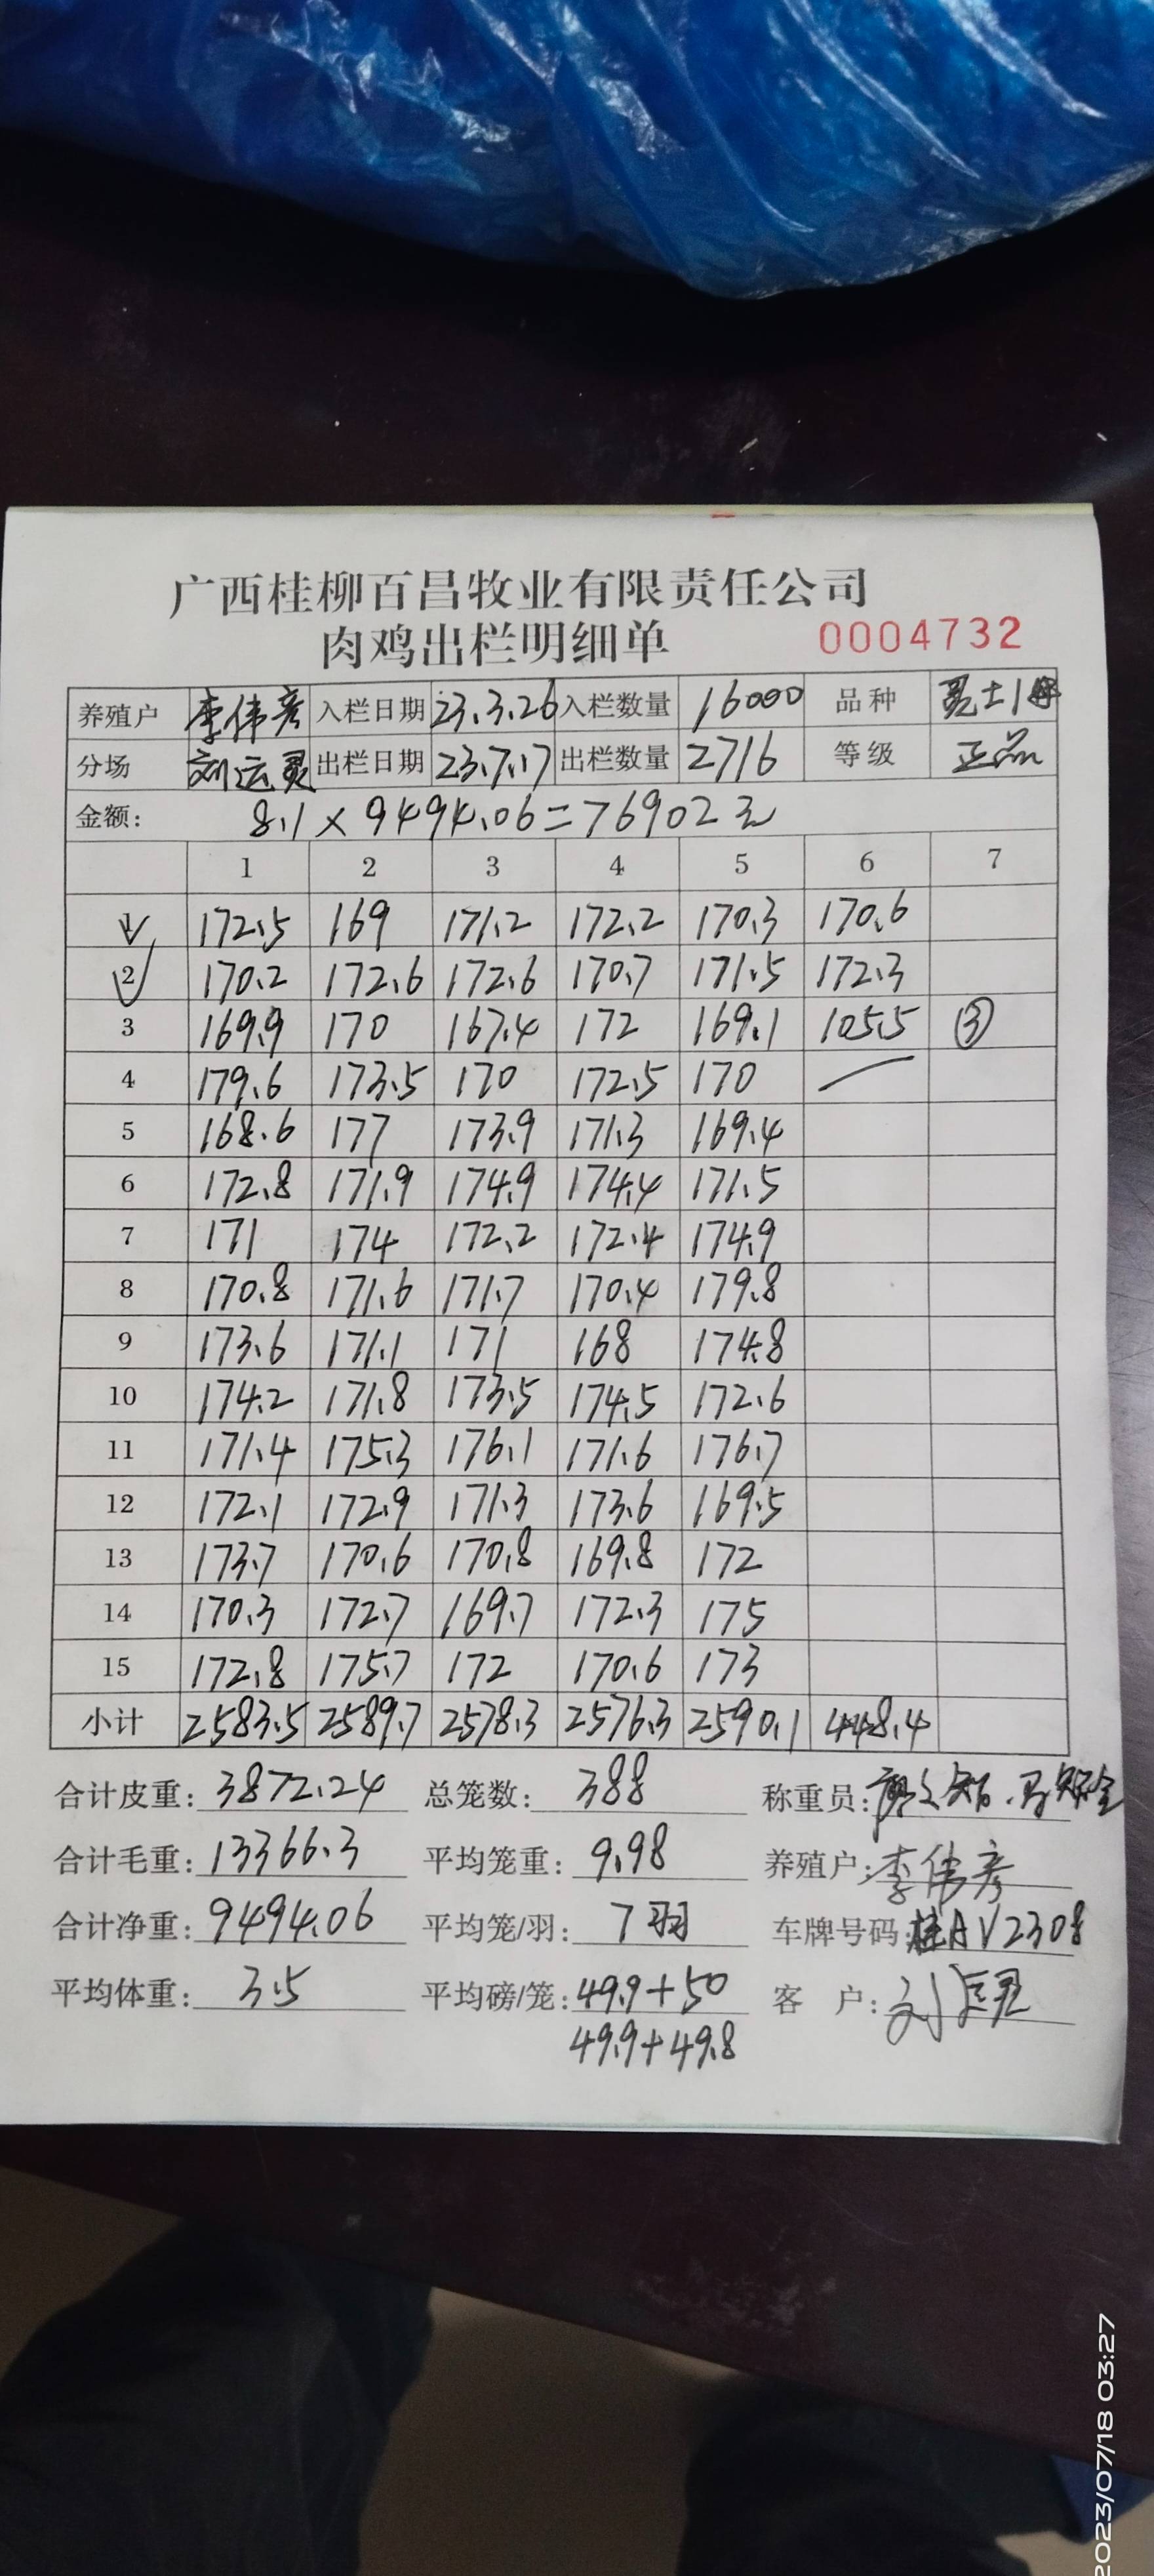 广西桂柳百昌牧业有限责任公司
肉鸡出栏明细单 0004732
养殖户 李伟彦 入栏日期 23.3.26 入栏数量 16000 品种
分场 刘运灵 出栏日期 23.7.17 出栏数量 2716 等级 正品
金额: 8.1×9494.06=76902元
1 2 3 4 5 6 7
1 172.5 169 171.2 172.2 170.3 170.6
2 170.2 172.6 172.6 170.7 171.5 172.3
3 169.9 170 167.4 172 169.1 105.5 ③
4 179.6 173.5 170 172.5 170
5 168.6 177 173.9 171.3 169.4
6 172.8 171.9 174.9 174.4 171.5
7 171 174 172.2 172.4 174.9
8 170.8 171.6 171.7 170.4 179.8
9 173.6 171.1 171 168 174.8
10 174.2 171.8 173.5 174.5 172.6
11 171.4 175.3 176.1 171.6 176.7
12 172.1 172.9 171.3 173.6 169.5
13 173.7 170.6 170.8 169.8 172
14 170.3 172.7 169.7 172.3 175
15 172.8 175.7 172 170.6 173
小计 2583.5 2589.7 2578.3 2576.3 2590.1 448.4
合计皮重: 3872.24 总笼数: 388 称重员:
合计毛重: 13366.3 平均笼重: 9.98 养殖户: 李伟彦
合计净重: 9494.06 平均笼/羽: 7羽 车牌号码: 桂AV2308
平均体重: 3.5 平均磅/笼: 49.9+50 客 户: 刘运灵
49.9+49.8
2023/07/18 03:27